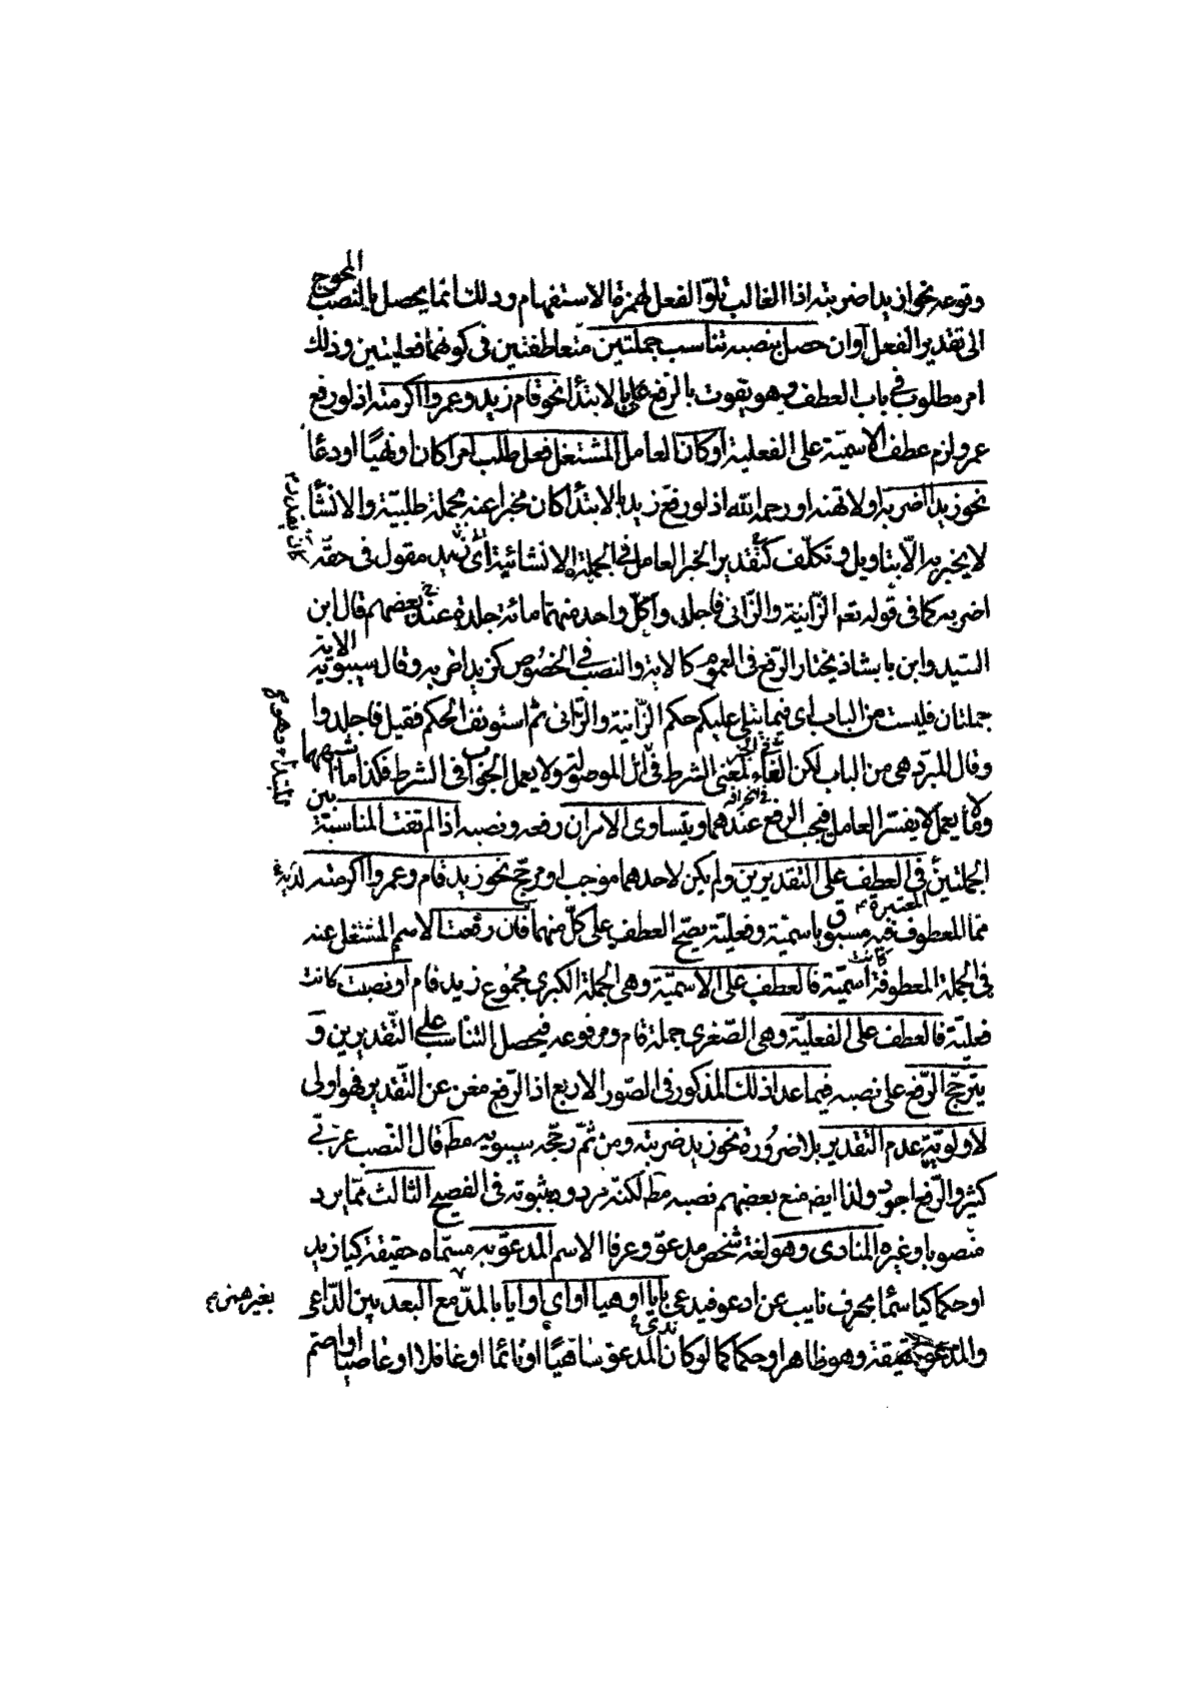 وقوعه نحو ازيدا ضربته اذا الغالب تلو الفعل لهمزة الاستفهام وذلك انما يحصل بالنصب المحوج
الى تقدير الفعل او ان حصل بنصبه تناسب جملتين متعاطفتين فى كونهما فعليتين وذلك
امر مطلوب في باب العطف وهو يفوت بالرفع على الابتدأ نحو قام زيد وعمروا اكرمته اذ لو رفع
عمرو لزم عطف الاسميّة على الفعلية او كان العامل المشتغل فعل طلب امرا كان او نهيًا او دعًا
نحو زيدا اضربه او لا تهنه او رحمه الله اذ لو رفع زيد بالابتدأ كان مخبرا عنه بجملة طلبيّة والانشأ
لا يخبر به الّا بتاويل وتكلّف كتقدير الخبر العامل فى الجملة الانشائية اى زيد مقول فى حقّه
اضربه كما فى قوله تعه الزّانية والزّانى فاجلدوا كلّ واحد منهما مائة جلدة عند بعضهم قال ابن
السّيد وابن بابشاذ يختار الرّفع فى العموم كالاية والنصب فى الخصوص كزيدا اضربه وقال سيبويه الاية
جملتان فليست من الباب اى فيما يتلى عليكم حكم الزّانية والزّانى ثم استونف الحكم فقيل فاجلدوا
وقال المبرّد هى من الباب لكن الفاء لمعنى الشرط فى ال الموصولة ولا يعمل الجواب فى الشرط فكذا ما اشبههما
وما لا يعمل لا يفسّر العامل فيجب الرفع عندهما ويتساوى الامران رفعه ونصبه اذا لم تفت المناسبة بين
الجملتين فى العطف على التقديرين ولم يكن لاحدهما موجب او مرجّح نحو زيد قام وعمروا اكرمته
ممّا المعطوف فيه مسبوق باسميّة وفعليّة يصحّ العطف على كلّ منهما فان رفعت الاسم المشتغل عنه
فى الجملة المعطوفة كانت اسميّة فالعطف على الاسميّة وهى الجملة الكبرى مجموع زيد قام او نصبت كانت
فعليّة فالعطف على الفعليّة وهى الصّغرى جملة قام ومرفوعه فيحصل التناسب على التّقديرين وَ
يترجّح الرّفع على نصبه فيما عدا ذلك المذكور فى الصّور الاربع اذ الرّفع مغن عن التّقدير فهو اولى
لاولويّة عدم التّقدير بلا ضرورة نحو زيد ضربته ومن ثمّ رجّحه سيبويه مط قال النّصب عربّي
كثير والرّفع اجود ولذا ايضه منع بعضهم نصبه مط لكنّه مردود بثبوته فى الفصيح الثالث ممّا يرد
منصوبا وغيره المنادى وهو لغة شخص مدعوّ وعرفا الاسم المدعوّ به مسمّاه حقيقة كيا زيد
او حكما كيا سمآ بحرف نايب عن ادعو فيدعى بايا او هيا او اى او ايا بالمدّ مع البعد بين الدّاعى
والمدعوّ حقيقة وهو ظاهر او حكما كما لو كان المدعوّ ساهيًا او نائما او غافلا او عاصيا او اصم